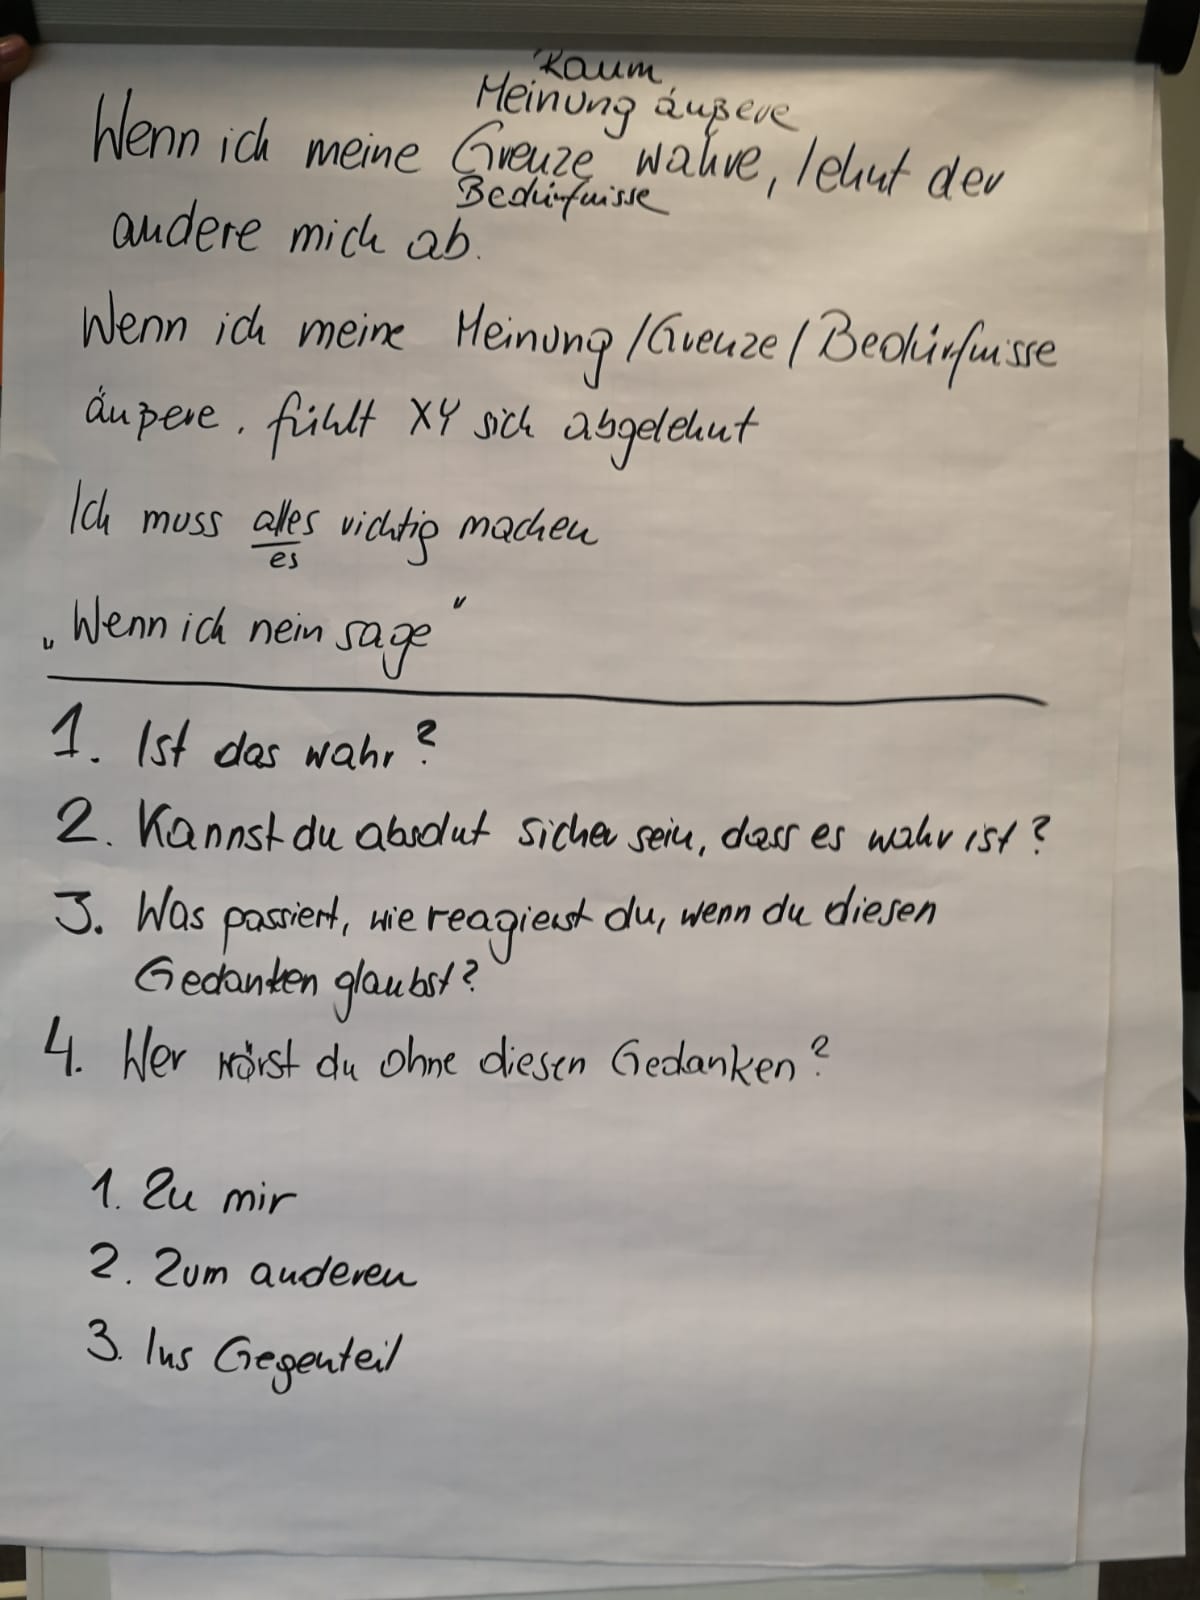 Raum
Meinung äußere
Wenn ich meine Grenze wahre, lehnt der
Bedürfnisse
andere mich ab.
Wenn ich meine Meinung/Grenze/Bedürfnisse
äußere, fühlt XY sich abgelehnt
Ich muss alles richtig machen
es
„Wenn ich nein sage“
1. Ist das wahr?
2. Kannst du absolut sicher sein, dass es wahr ist?
3. Was passiert, wie reagierst du, wenn du diesen
Gedanken glaubst?
4. Wer wärst du ohne diesen Gedanken?
1. Zu mir
2. Zum anderen
3. Ins Gegenteil